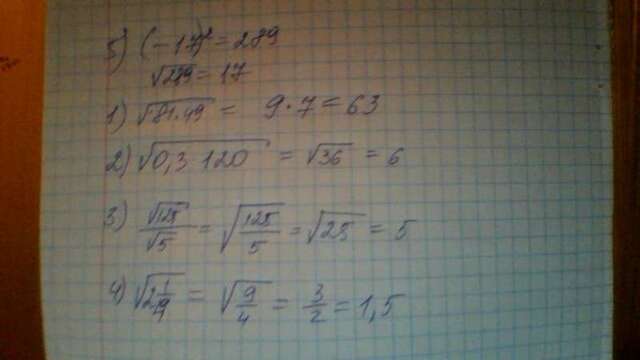 5) (-17)² = 289
√289 = 17
1) √81·49 = 9·7 = 63
2) √0,3 120 = √36 = 6
3) √125/√5 = √125/5 = √25 = 5
4) √2 1/4 = √9/4 = 3/2 = 1,5